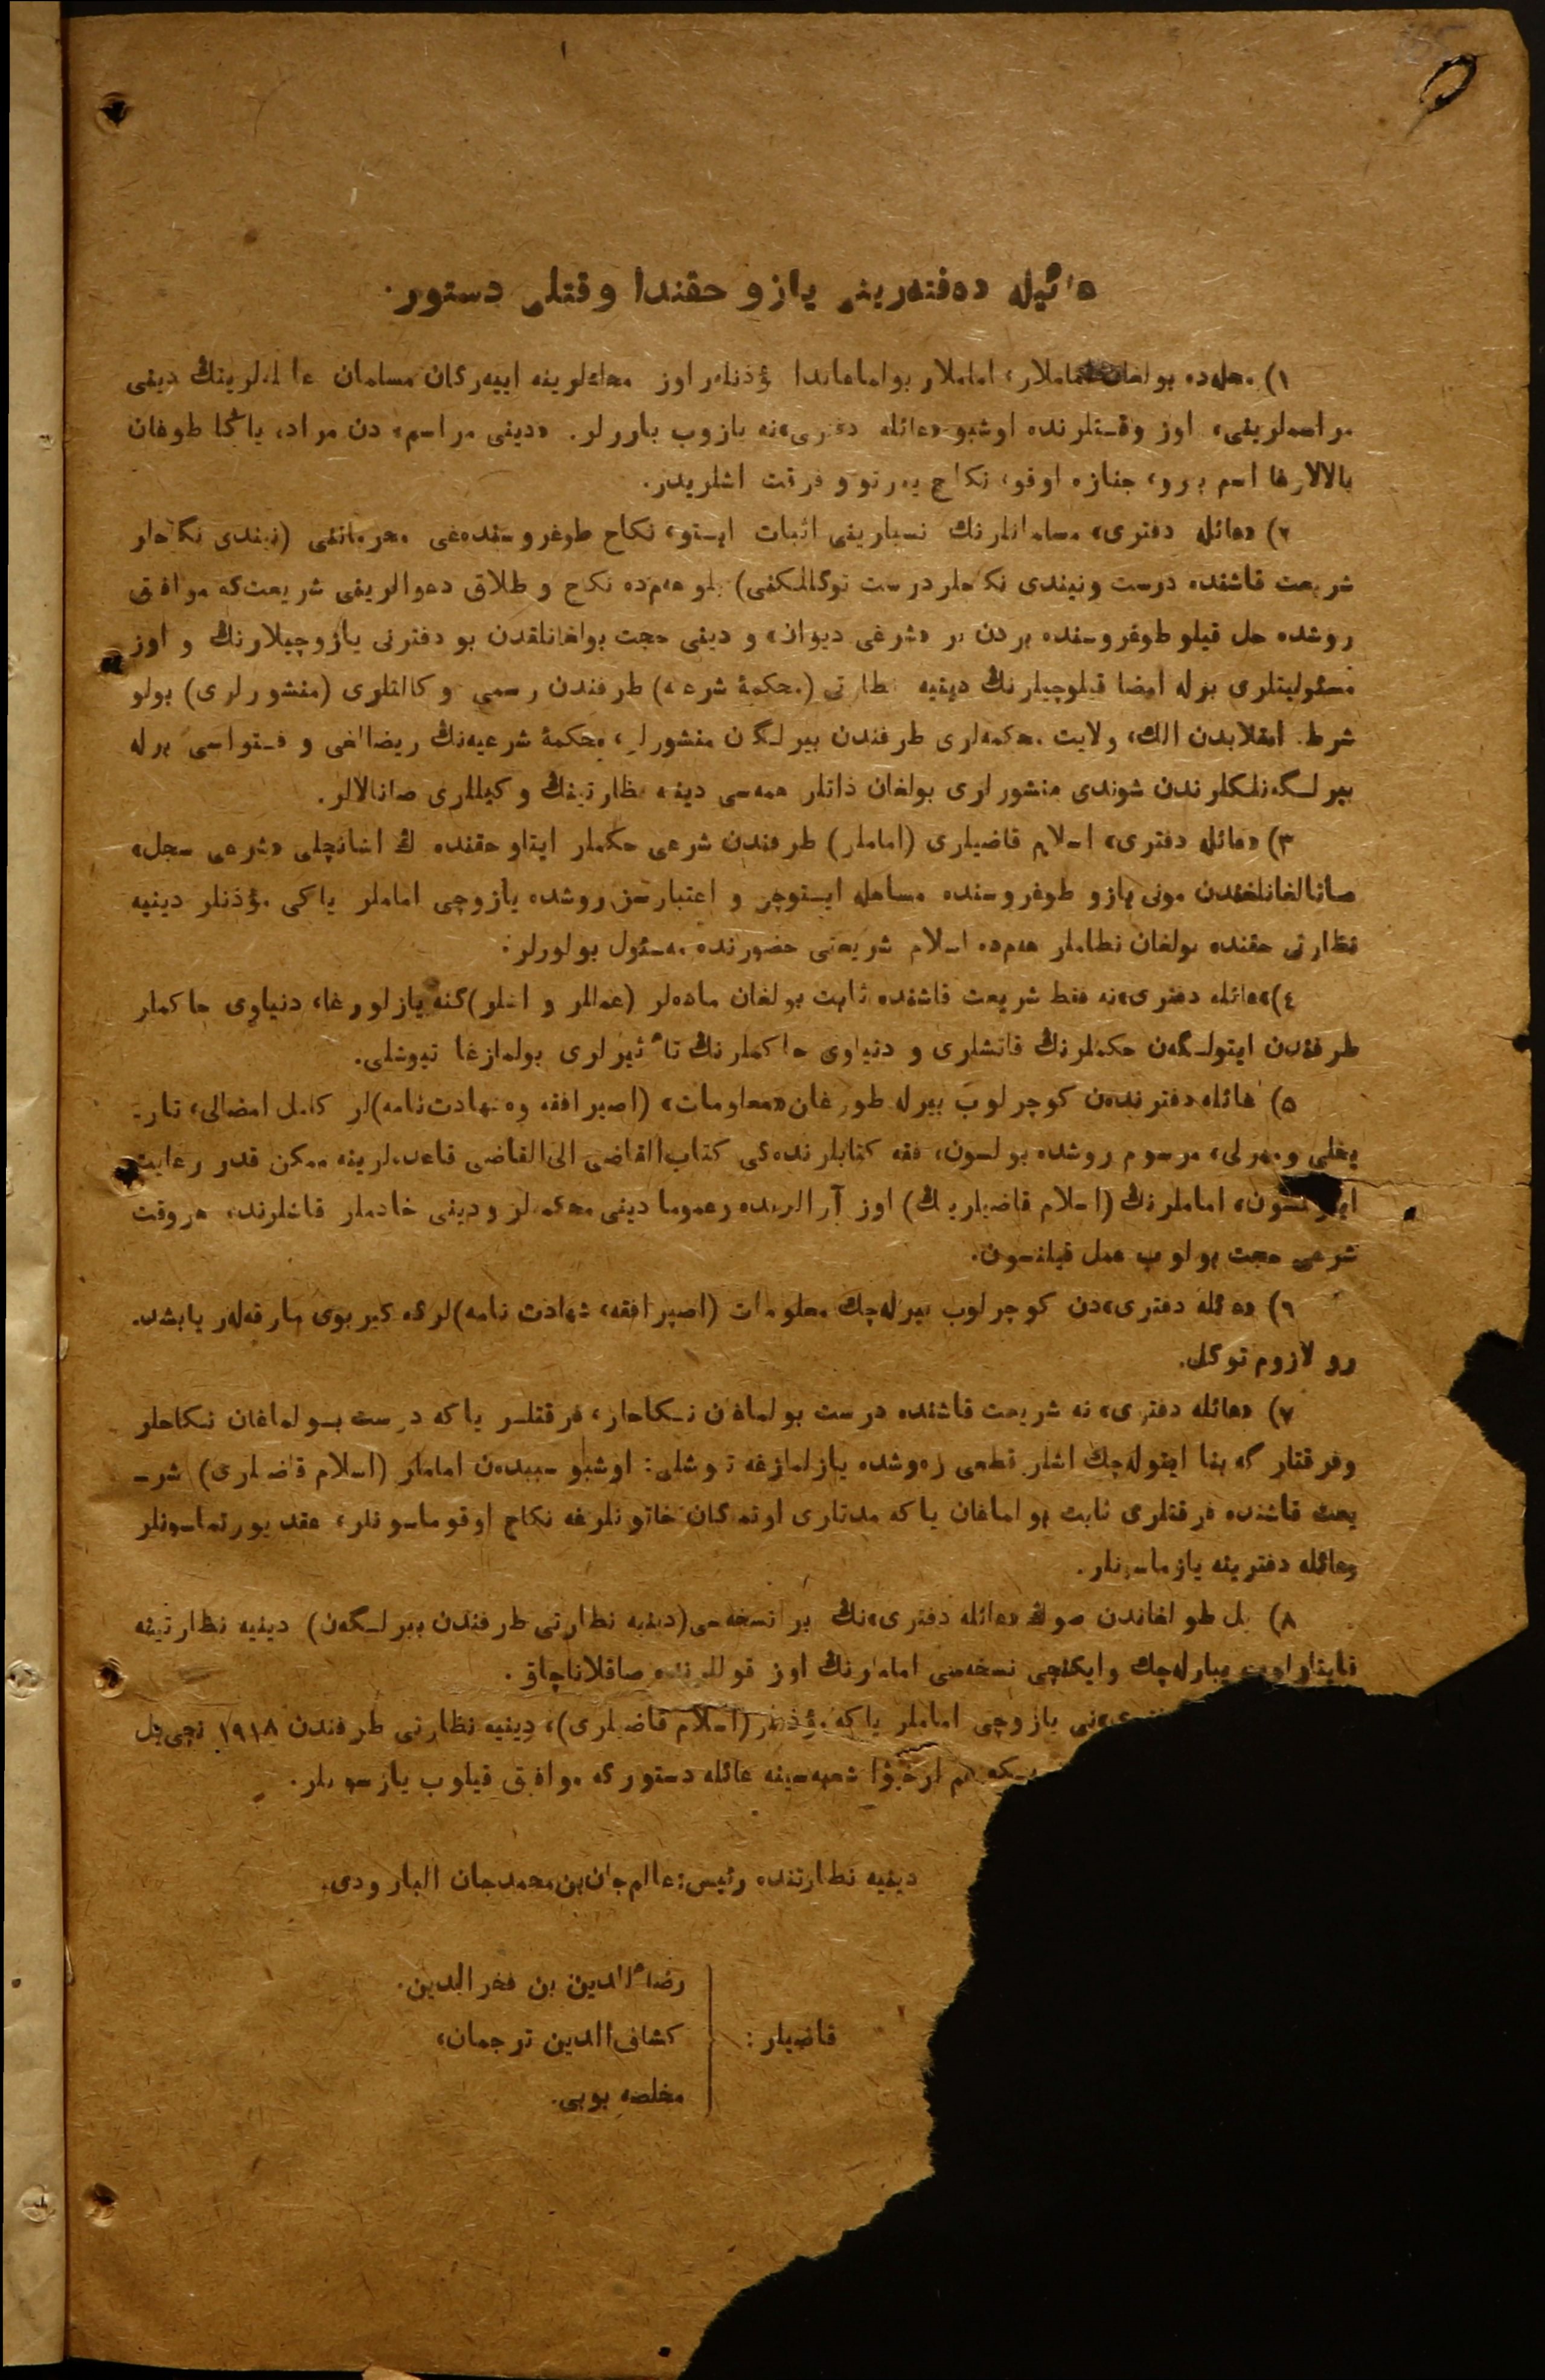 عائیله دەفتەرینی یازو حقندا وقتلی دستور.
۱) محلەده بولغان اماملار، اماملار بولماغاندا مؤذنلر اوز محلەلرینه اییەرگان مسلمان عائلەلرینڭ دینی
مراسملرینی، اوز وقـتلرنده اوشبو «عائله دفتری»نه یازوب باررلر. «دینی مراسم» دن مراد، یاڭا طوغان
بالالارغا اسم بیرو، جنازه اوقو، نکاح یورتو و فرقت اشلریدر.
۲) «عائله دفتری» مسلمانلرنڭ نسبلرینی اثبات ایـتو، نکاح طوغروسندەغی محرماتنی (نیندی نکاحلر
شریعت قاشنده درست ونیندی نکاحلر درست توگللکنی) بلو هەمده نکاح و طلاق دعوالرینی شریعت‌که موافق
روشده حل قیلو طوغروسنده بردن بر «شرعی دیوان» و دینی حجت بولغانلقدن بو دفترنی یازوچیلارنڭ و اوز
مسئولیتلری برله امضا قیلوچیلرنڭ دینیه نظارتی (محکمۀ شرعیه) طرفندن رسمی وکالتلری (منشورلری) بولو
شرط. انقلابدن الك، ولایت محکمەلری طرفندن بیرلـگن منشورلر، محکمۀ شرعیەنڭ ریضالغی و فـتواسی برله
بیرلـگەنلکلرندن شوندی منشورلری بولغان ذاتلر همەسی دینیه نظارتینڭ وکیللری صانالالر.
۳) «عائله دفتری» اسلام قاضیلری (اماملر) طرفندن شرعی حکملر ایتلو حقنده ڭ اشانچلی «شرعی سجل»
صانالغانلغندن مونی یازو طوغروسنده مساهله ایـتوچی و اعتبارسز روشده یازوچی اماملر یاکی مؤذنلر دینیه
نظارتی حقنده بولغان نظاملر هەمده اسلام شریعتی حضورنده مەسئول بولورلر.
٤) «عائله دفتری»نه فقط شریعت قاشنده ثابت بولغان مادەلر (عمللر و اشلر) گنه یازلورغا، دنیاوی حاکملر
طرفندن ایتولـگەن حکملرنڭ قاتشلری و دنیاوی حاکملرنڭ تاٴثیرلری بولمازغا تیوشلی.
۵) عائله دفترندەن کوچرلوب بیرله طورغان «معلومات» (اصپرافقه وە شهادت‌نامه)لر کامل امضالی، تار-
یخلی و مهرلی، مرسوم روشده بولسون، فقه کتابلرندەگی کتاب‌القاضی الی‌القاضی قاعدەلرینه ممکن قدر رعایت
ایتلسون، اماملرنڭ (اسلام قاضیلرینڭ) اوز آرالرنده وعموما دینی محکمەلر و دینی خادملر قاشلرنده، هروقت
شرعی حجت بولوب عمل قیلنسون.
٦) «عائله دفتری»دن کوچرلوب بیرلەچك معلومات (اصپرافقه، شهادت نامه)لرگه گیربوی مارقەلەر یابشد.
رو لازوم توگل.
۷) «عائله دفتری» نه شریعت قاشنده درست بولماغان نـکاحلر، فرقتلـر یاکه درست بـولماغان نـکاحلر
وفرقتلر گه بنا ایتولەچك اشلر قطعی رەوشده یازلمازغه تیوشلی: اوشبو سببدەن اماملر (اسلام قاضیلری) شر-
یعت قاشنده فرقتلری ثابت بولماغان یاکه مدتلری اوتمەگان خاتونلرغه نکاح اوقوماسونلر، عقد یورتماسونلر
وعائله دفترینه یازماسونلر.
۸) یل طولغاندن صوڭ «عائله دفتری»نڭ بر نسخەسی (دینیه نظارتی طرفندن بیرلـگەن) دینیه نظارتینه
قایتارلوب یبارلەچك وایکنچی نسخەسی اماملرنڭ اوز قوللرنده صاقلاناچاق.
نی یازوچی اماملر یاکه مؤذنلر (اسلام قاضیلری)، دینیه نظارتی طرفندن ۱۹۱۸ نچی یل
هم ارخیوا شعبەسینه عائله دستورگه موافق قیلوب یازسونلر.
دینیه نظارتنده رئیس: عالم‌جان بن محمدجان البارودی.
قاضیلر:
رضاٴالدین بن فخرالدین.
کشاف‌الدین ترجمان،
مخلصه بوبی.